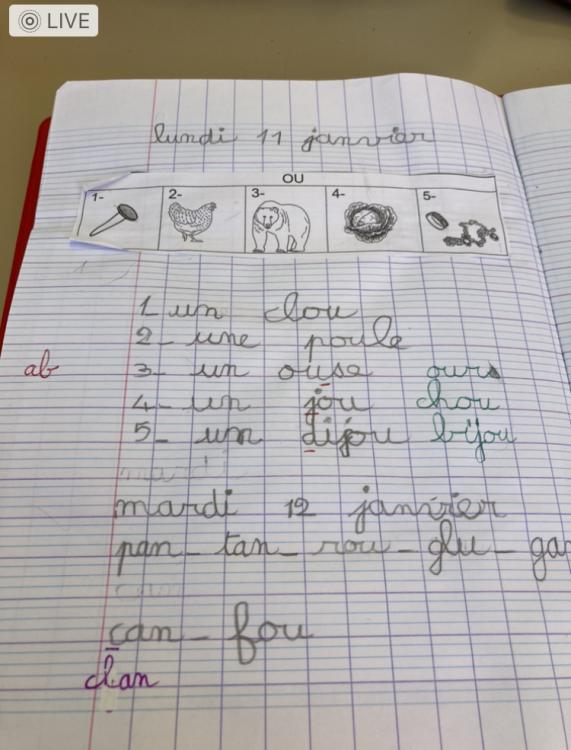 LIVE
lundi 11 janvier
OU
1- 2- 3- 4- 5-
1 un clou
2- une poule
ab 3- un ouse ours
4- un jou chou
5- un dijou bijou
mardi
mardi 12 janvier
pan - tan - rou - glu - ga
can - fou
clan